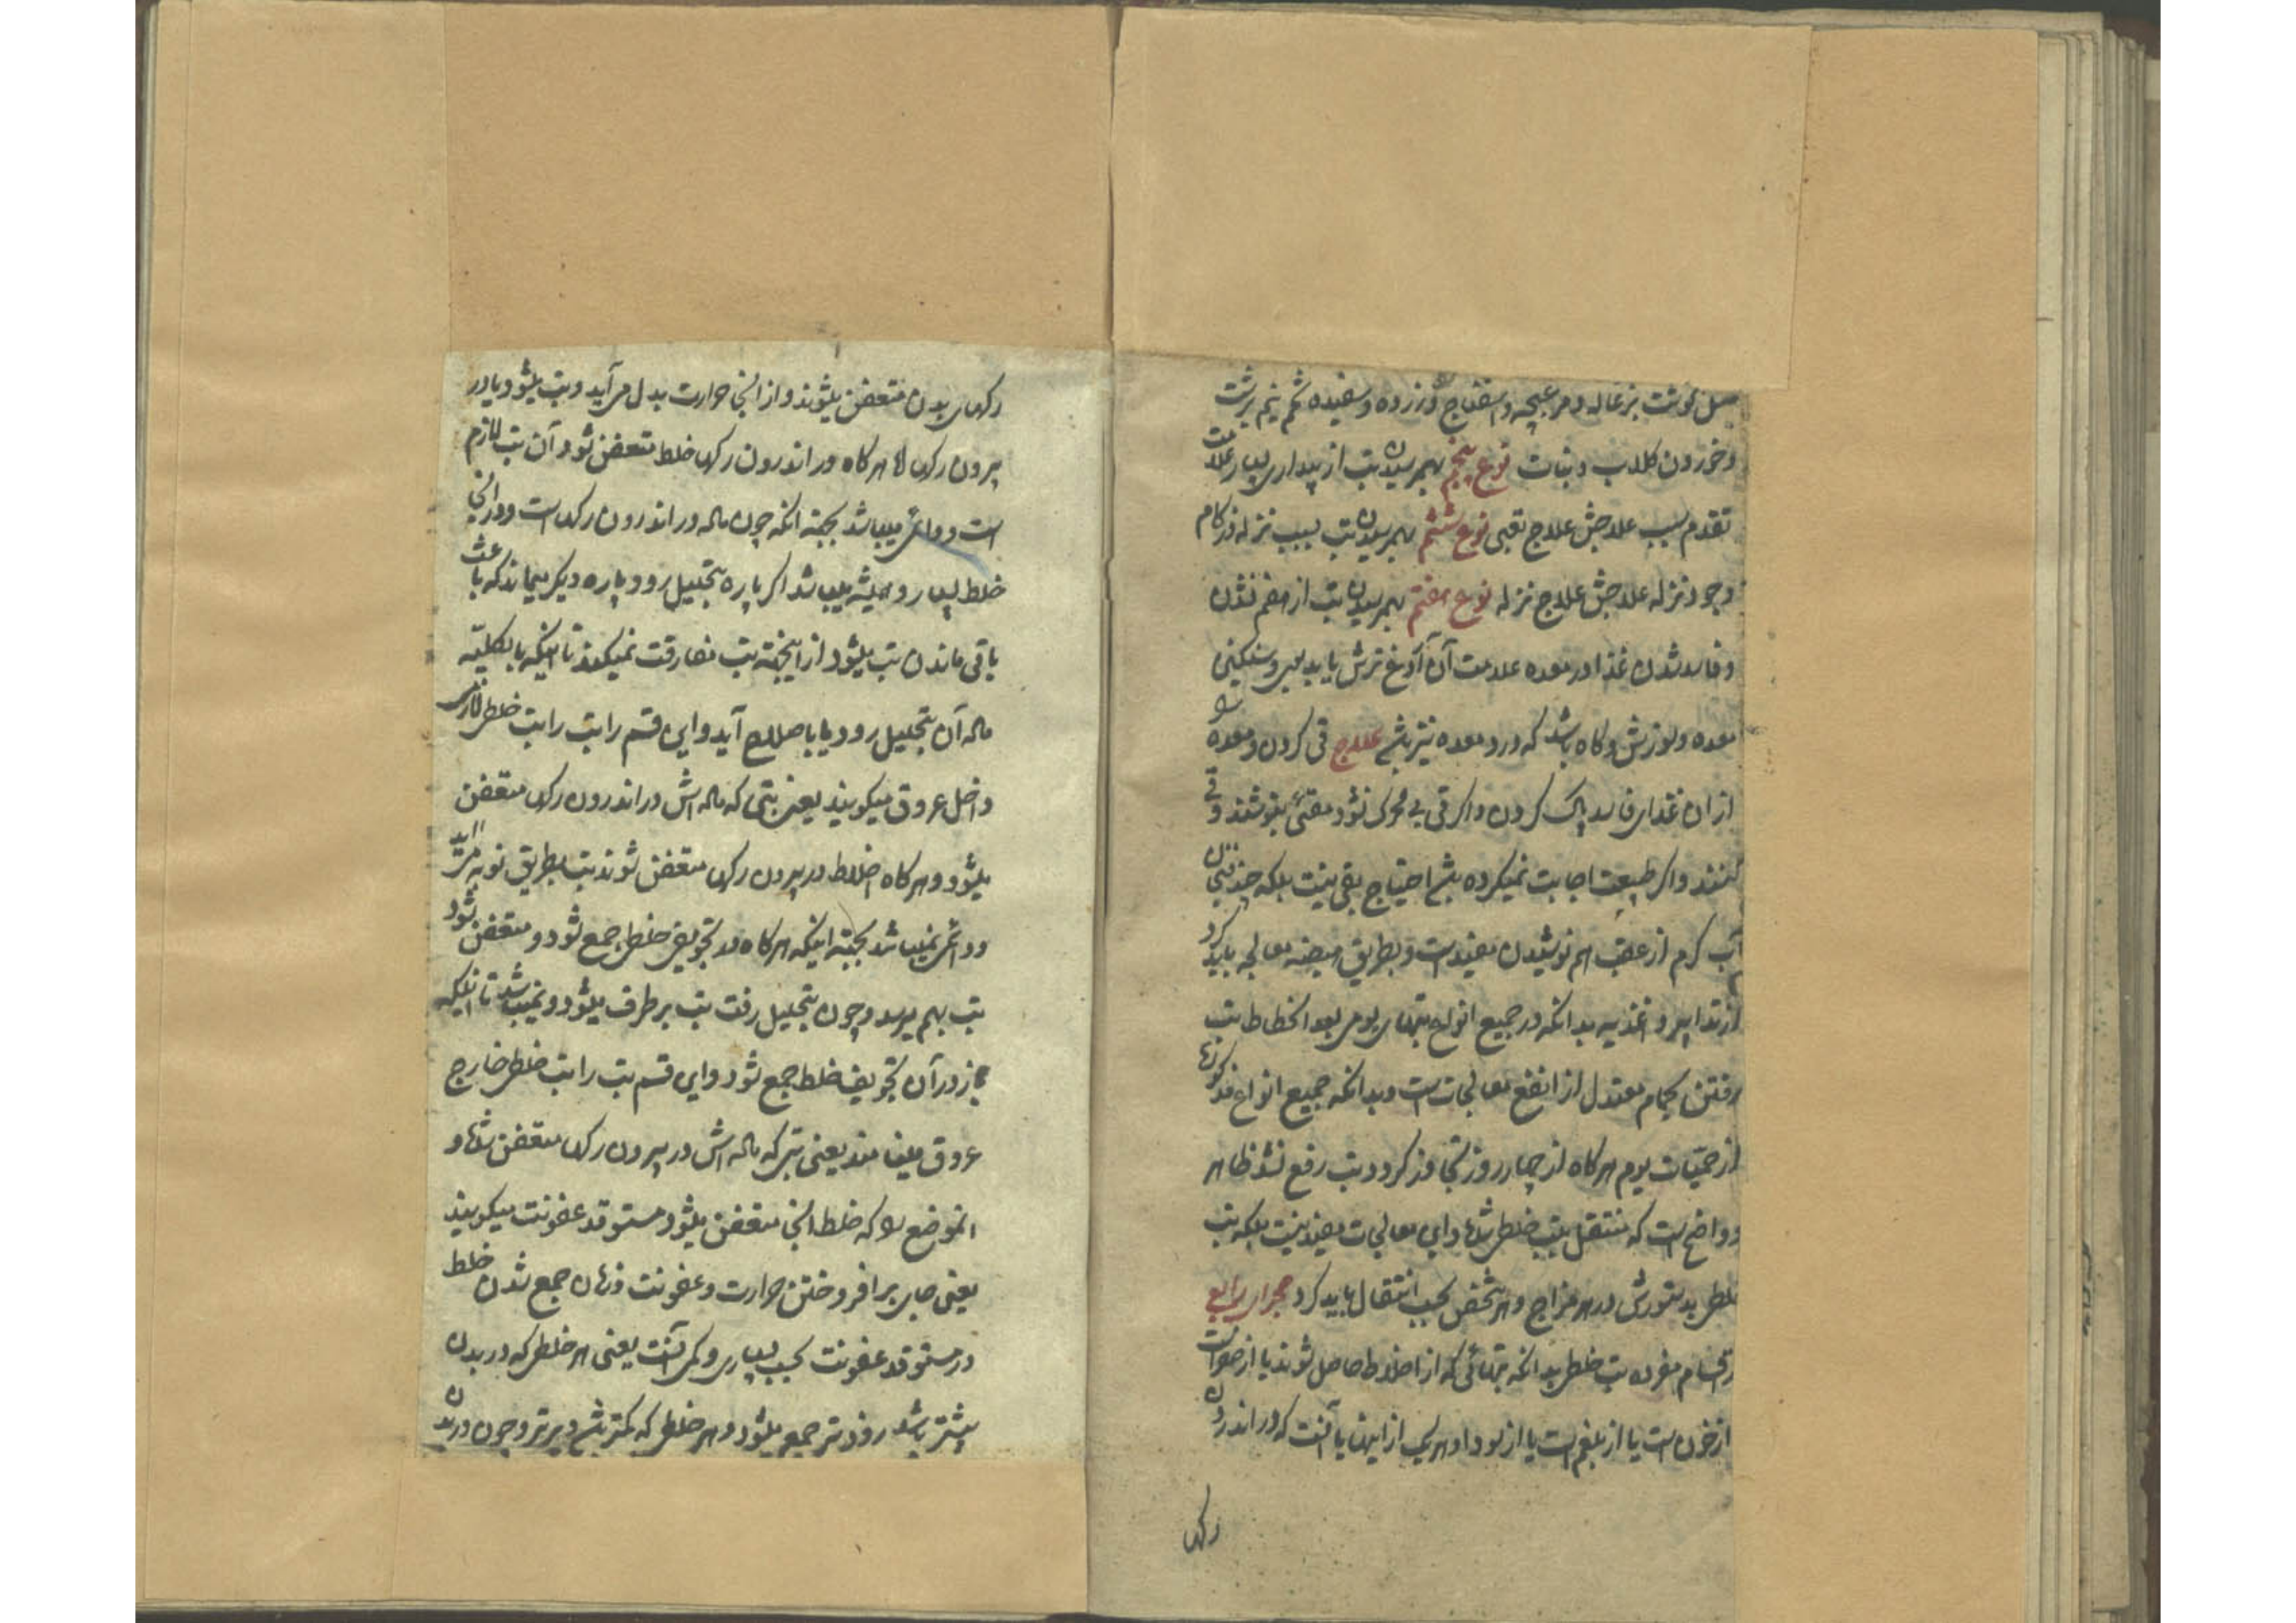 مثل گوشت بزغاله و مرغ بچه و اسفناج و زرده و سفیده تخم نیم برشت
و خوردن کلاب و نبات نوع پنجم بهمرسیدن تب از بیداری بسیار علامت
تقدم سبب علاجش علاج تعبی نوع ششم بهمرسیدن تب بسبب نزله و زکام
وجود نزله علاجش علاج نزله نوع هفتم بهمرسیدن تب از هضم نشدن
و فاسد شدن غذا در معده علامت آن آروغ ترش یا بدبوی و سنکینی
معده و سوزش و کاه باشد که درد معده نیز باشد علاج قی کردن و معده را
از ان غذای فاسد پاک کردن و اکر قی بی محرک نشود مقیئ بنوشند و قی
کنند و اکر طبیعت اجابت نمیکرده باشد احتیاج بقی نیست بلکه چند فنجان
آب کرم از عقب هم نوشیدن مفیدست و بطریق هیضه معالجه باید کرد
از تدابیر و اغذیه بدانکه در جمیع انواع تبهای یومی بعد انحطاط تب
رفتن بحمام معتدل از انفع معالجات است و بدانکه جمیع انواع مذکورها
از حمیات یوم هرکاه از چهار روز تجاوز کرد و تب رفع نشد ظاهر
و واضح است که منتقل بتب خلطی شده و این معالجات مفید نیست بلکه تب
خلطی بدستورش در هر مزاج و هر شخص بحسب انتقال باید کرد مجرای رابع
در اقسام مفرده تب خلطی بدانکه تبهائی که از اخلاط حاصل شوند یا از صفراست
از خون است یا از بلغم است یا از سودا و هر یک از اینها یا آنست که در اندرون
رکهای
رکهای بدن متعفن میشوند و از آنجا حرارت بدل می آید و تب میشود یا در
بیرون رکها اما هرکاه در اندرون رکها خلط متعفن شود آن تب لازم
است و دائمی میباشد بجهته انکه چون ماده در اندرون رکها است و در آنجا
خلط بسیار و همیشه میباشد اکر پاره بتحلیل رود پاره دیکر میماند که باعث
باقی ماندن تب میشود از اینجهته تب مفارقت نمیکند تا اینکه بالکلیه
ماده آن بتحلیل رود یا باصلاح آید و این قسم را تب را تب خلطی لازمی
داخل عروق میکویند یعنی تبی که ماده اش در اندرون رکها متعفن
میشود و هرکاه اخلاط در بیرون رکها متعفن شوند تب بطریق نوبه می آید
و دائمی نمیباشد بجهته اینکه هرکاه در تجویفی خلطی جمع شود و متعفن شود
تب بهم میرسد و چون بتحلیل رفت تب بر طرف میشود و نمیباشد تا اینکه
باز در آن تجویف خلط جمع شود و این قسم تب را تب خلطی خارج
عروق مینامند یعنی تبی که ماده اش در بیرون رکها متعفن شده و
انموضع را که خلط آنجا متعفن میشود مستوقد عفونت میکویند
یعنی جای برافروختن حرارت و عفونت و زمان جمع شدن خلط
در مستوقد عفونت بحسب بسیاری و کمی آنست یعنی هر خلطی که در بدن
بیشتر باشد زودتر جمع میشود و هر خلطی که کمتر باشد دیرتر و چون در بدن